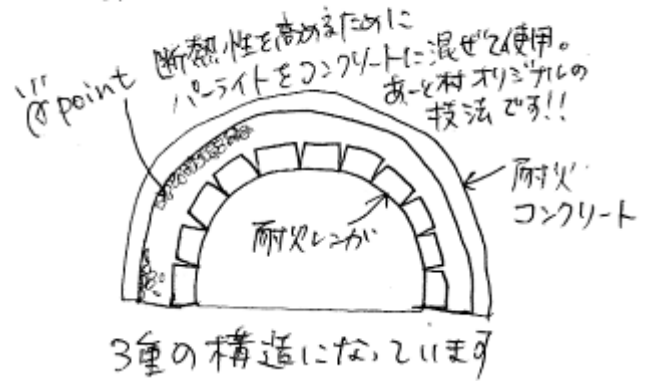 断熱性を高めるために
パーライトをコンクリートに混ぜて使用。
あーと村オリジナルの
技法です!!
point
耐火
コンクリート
耐火レンガ
3重の構造になっています